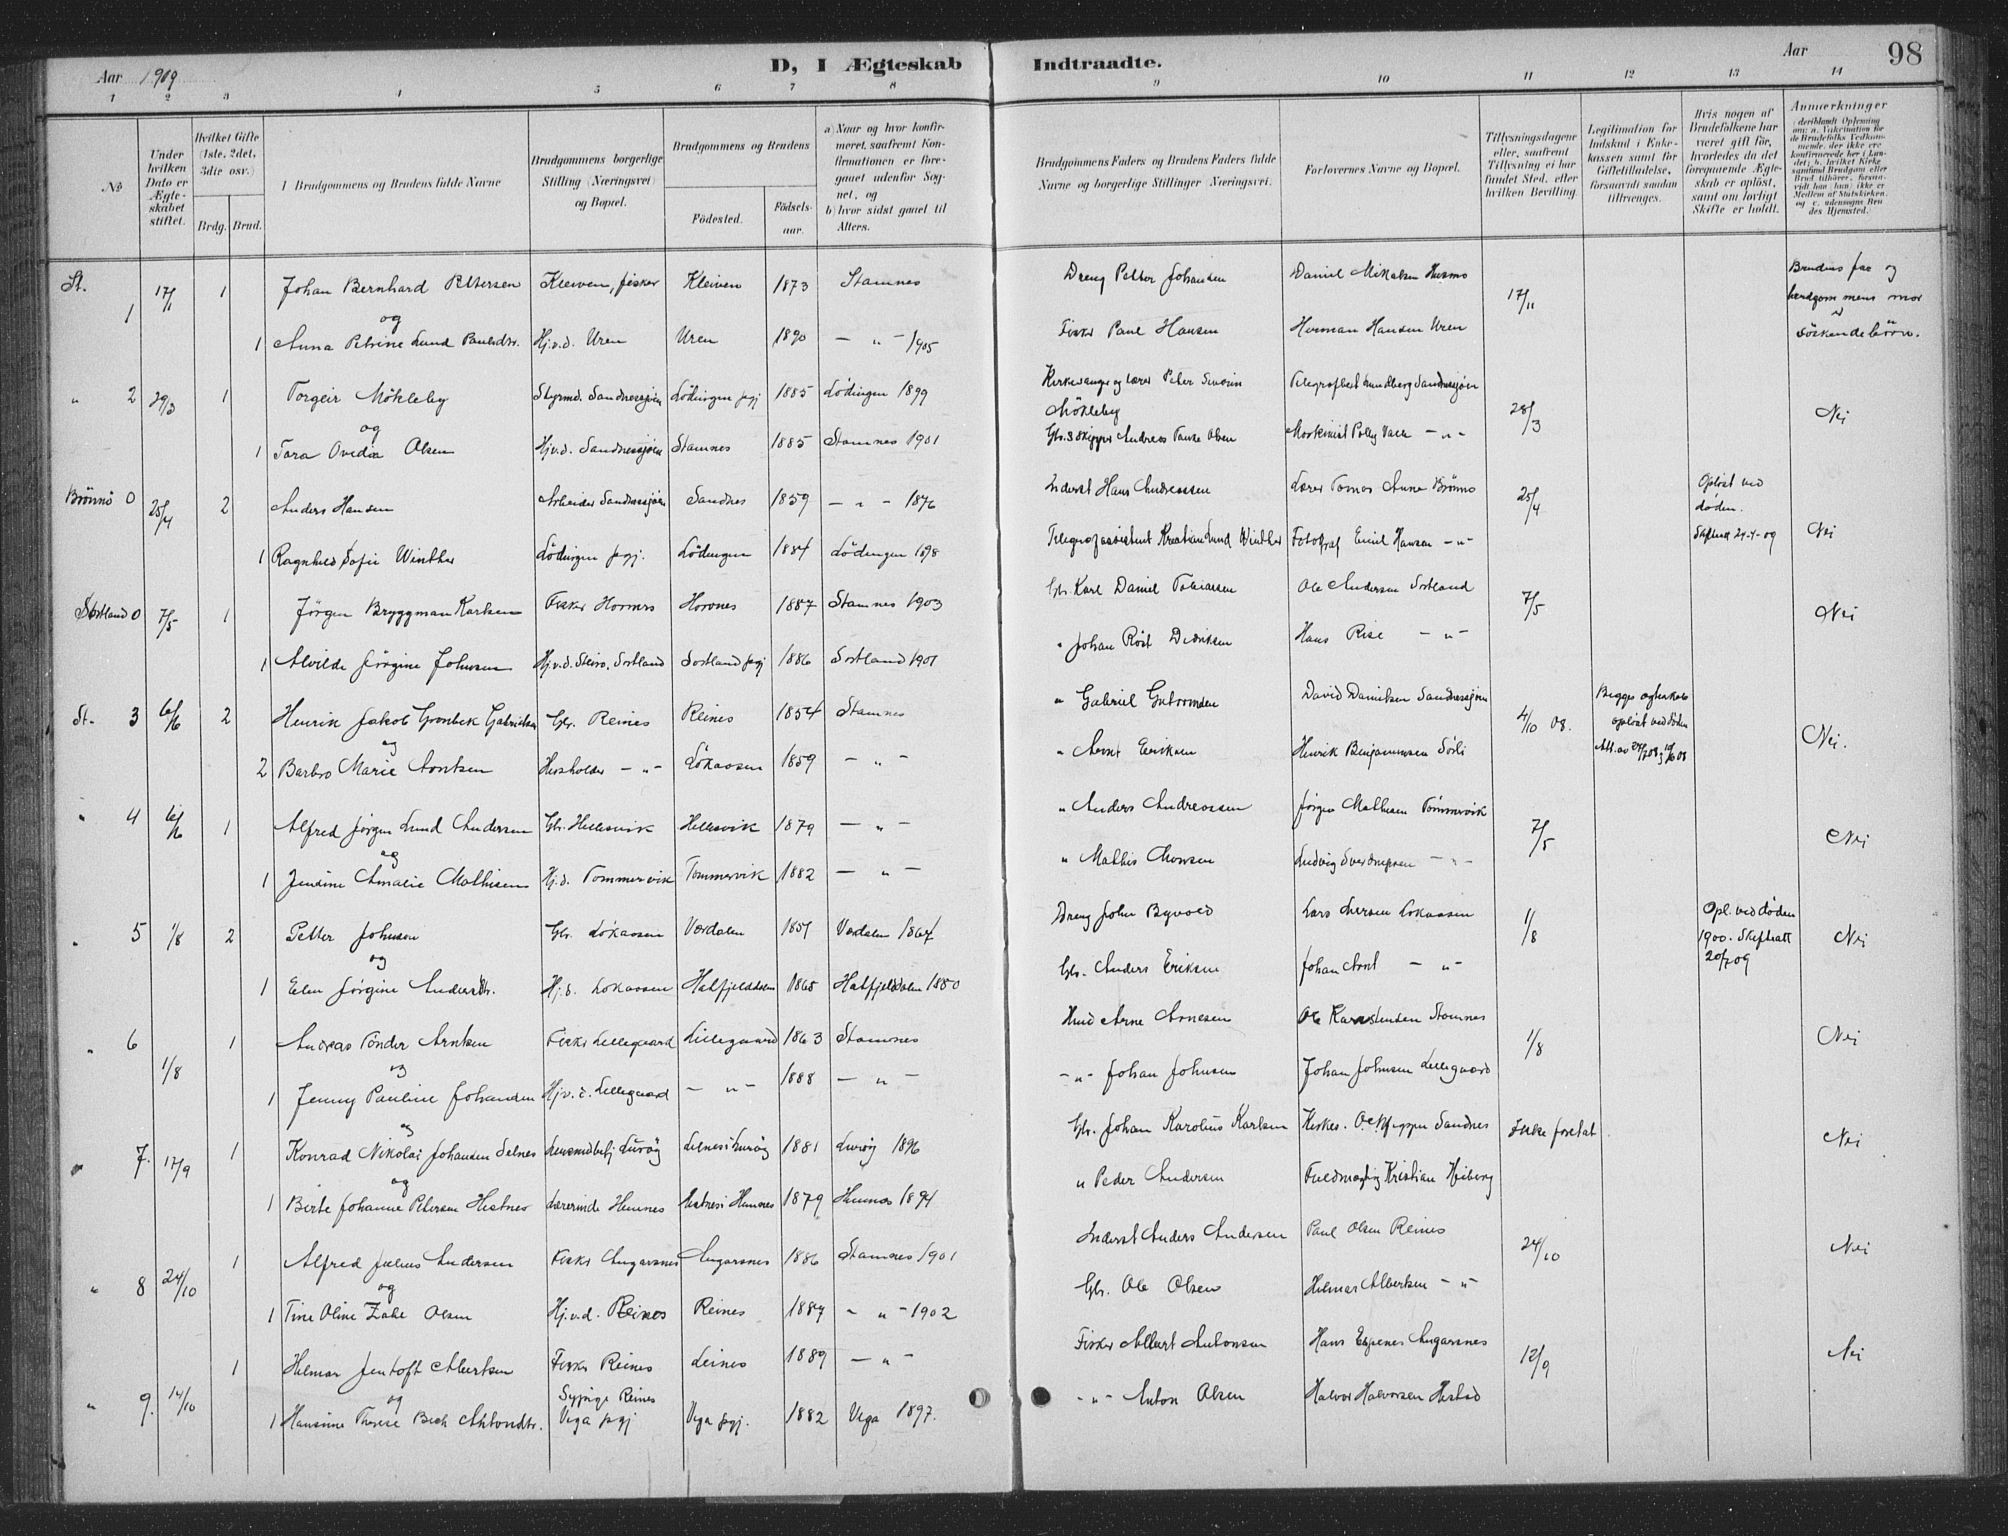 Aar 1909
D, I Ægteskab Indtraadte.
Aar
98
1 2 3 4 5 6 7 8 9 10 11 12 13 14
No
Under hvilken Dato er Ægteskabet stiftet.
Hvilket Gifte (1ste, 2det, 3die osv.)
Brdg. Brud.
Brudgommens og Brudens fulde Navne
Brudgommens borgerlige Stilling (Næringsvei) og Bopæl.
Brudgommens og Brudens
Födested.
Födselsaar.
a) Naar og hvor konfirmeret, saafremt Konfirmationen er foregaaet udenfor Sognet, og
b) hvor sidst gaaet til Alters.
Brudgommens Faders og Brudens Faders fulde Navne og borgerlige Stillinger (Næringsvei).
Forlovernes Navne og Bopæl.
Tillysningsdagene eller, saafremt Tillysning ei har fundet Sted, efter hvilken Bevilling.
Legitimation for Indskud i Enkekassen samt for Giftetilladelse, forsaavidt saadan tiltrænges.
Hvis nogen af Brudefolkene har været gift før, hvorledes da det foregaaende Ægteskab er opløst, samt om lovligt Skifte er holdt.
Anmærkninger
St. 1 17/1 1 Johan Bernhard Petersen Kleiven, fisker Kleiven 1873 Stamnes Dreng Petter Johansen Daniel Mikalsen Husmo 17/11 Brudens far og brudgommens mor söskendebörn.
og
1 Anna Petrine Lund Paulsdtr. Hj.v.d. Uren Uren 1890 — " — 1905 Fisker Paul Hansen Herman Hansen Uren
" 2 29/3 1 Torgeir Mökleby Styrmd. Sandnessjöen Lödingen pgj 1885 Lödingen 1899 Kirkesanger og lærer Peter Mökleby Lundberg Sandnessjöen 28/3 Nei
og
1 Tara Ovedia Olsen Hj.v.d. Sandnessjöen Stamnes 1885 Stamnes 1901 Gbr. Skipper Andreas Olsen Maskinist — " —
Brönnö 0 25/4 2 Anders Hansen Arbeider Sandnessjöen Sandnes 1859 — " — 1876 Inderst Hans Andreassen Lærer Tomas Aune Brönnö 25/4 Oplöst ved döden.
1 Ragnhild Sofie Winther Lödingen pgj. Lödingen 1884 Lödingen 1898 Telegrafassistent Kristian Lund Winther Fotograf Emil Hansen — " — Nei
Sortland 0 7/5 1 Jörgen Bryggman Karlsen Fisker Horvnes Horvnes 1887 Stamnes 1903 Gbr. Karl Daniel Tobiassen Ole Andersen Sortland 7/5 Nei
1 Alvilde Jörgine Johnsen Hj.v.d. Steiro, Sortland Sortland pgj 1886 Sortland 1901 " Johan Röst Didriksen Hans Rise — " —
St. 3 2 Henrik Jakob Grönbek Gabrielsen Gbr. Reines Reines 1854 Stamnes " Gabriel Guttormsen David Danielsen Sandnessjöen 4/10 08. Begges egteskab oplöst ved döden Nei.
og
2 Barbro Marie Arntsen Husholder — " — Lökaasen 1859 — " — " Arnt Eriksen Henrik Benjaminsen Sörli
" 4 1 Alfred Jörgen Lund Andersen Gbr. Hellesvik Hellesvik 1879 — " — " Anders Andreassen Jörgen Mathisen Tömmervik 7/5 Nei
og
1 Jensine Amalie Mathisen Hj.d. Tommervik Tommervik 1882 — " — " Mathis Monsen Ludvig Sverdrupsen — " —
" 5 1/8 2 Petter Johnsen Gbr. Lökaasen Værdalen 1851 Værdalen 1867 Dreng John Byvold Lars Larsen Lökaasen 1/8 Opl. ved döden 1900. Skifteatt 20/7 09 Nei
og
1 Elen Jörgine Andersdtr. Hj.d. Lökaasen Hatfjelddalen 1865 Hatfjelddalen 1880 Gbr. Anders Eriksen Johan Arnt — " —
" 6 1/8 1 Andreas Tönder Arntsen Fisker Lillegaard Lillegaard 1863 Stamnes Husmd Arne Arnesen Ole Karstensen Stamnes 1/8 Nei
og
1 Jenny Pauline Johansen Hj.v.d. Lillegaard — " — 1888 — " — — " — Johan Johnsen Johan Johnsen Lillegaard
" 7. 17/9 1 Konrad Nikolai Johansen Selnes Lensmdbetj Luröy Selnes i Luröy 1881 Luröy 1896 Gbr. Johan Karolius Karlsen Sandnes Ikke foretat Nei
og
1 Berte Johanne Petersen Hestnes Lærerinde Hemnes Hestnes i Hemnes 1879 Hemnes 1894 " Peder Andersen Fuldmægtig Kristian Heiberg
" 8 24/10 1 Alfred Julius Andersen Fisker Angarsnes Angarsnes 1886 Stamnes 1901 Inderst Anders Andersen Paul Olsen Reines 24/10 Nei
og
1 Tine Oline Zahl Olsen Hj.v.d. Reines Reines 1884 — " — 1902 Gbr. Ole Olsen Helmar Albertsen — " —
" 9. 14/10 1 Helmar Jentoft Albertsen Fisker Reines Leines 1889 — " — Fisker Albert Antonsen Hans Espenes Angarsnes 12/9 Nei
og
1 Hansine Therese Bech Antondtr. Sypige Reines Vega pgj Vega pgj. 1882 Vega 1897. — " — Anton Olsen Halvor Halvorsen Hestad